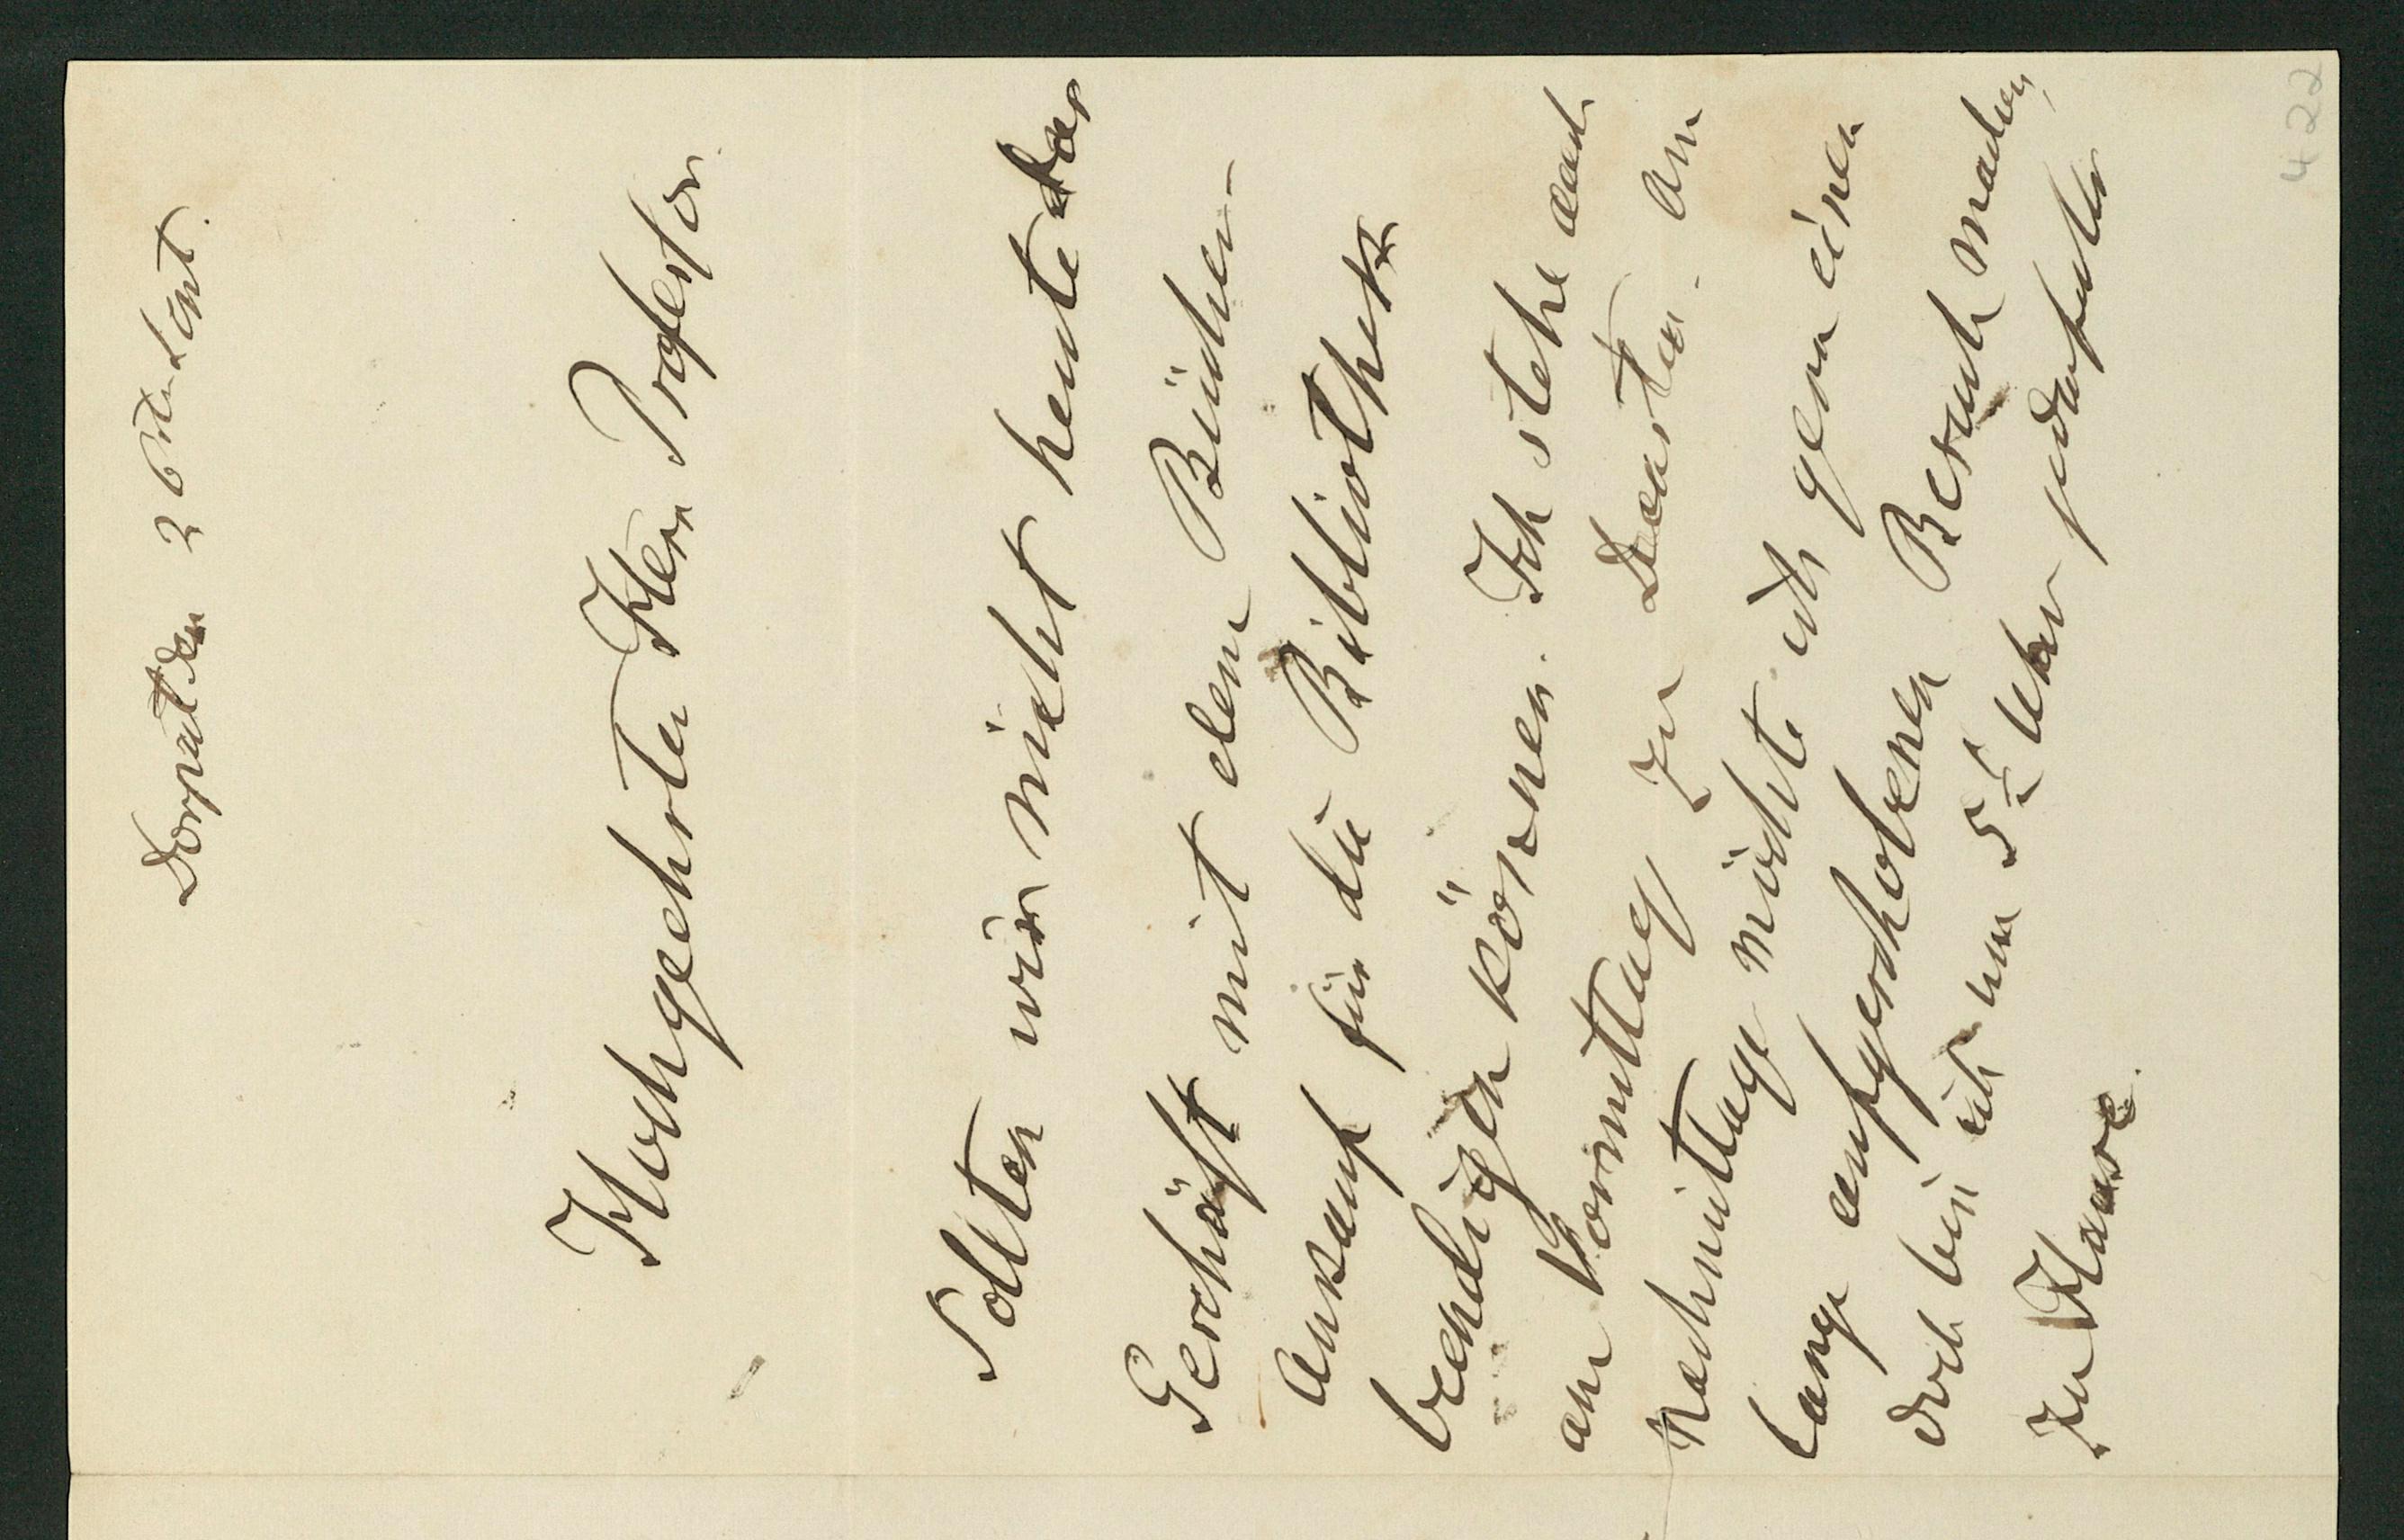 422
Dorpat den 26ten Sept.
Hochgeehrter Herr Professor
Sollten wir nicht heute das
Geschäft mit dem Bücher-
Ankauf für die Bibliothek
beendigen können. Ich stehe auch
am Vormittag zu Dienste. Am
Nachmittage möchte ich gern einen
lange aufgeschobenen Besuch machen,
doch bin ich um 5 Uhr jedenfalls
zu Hause.